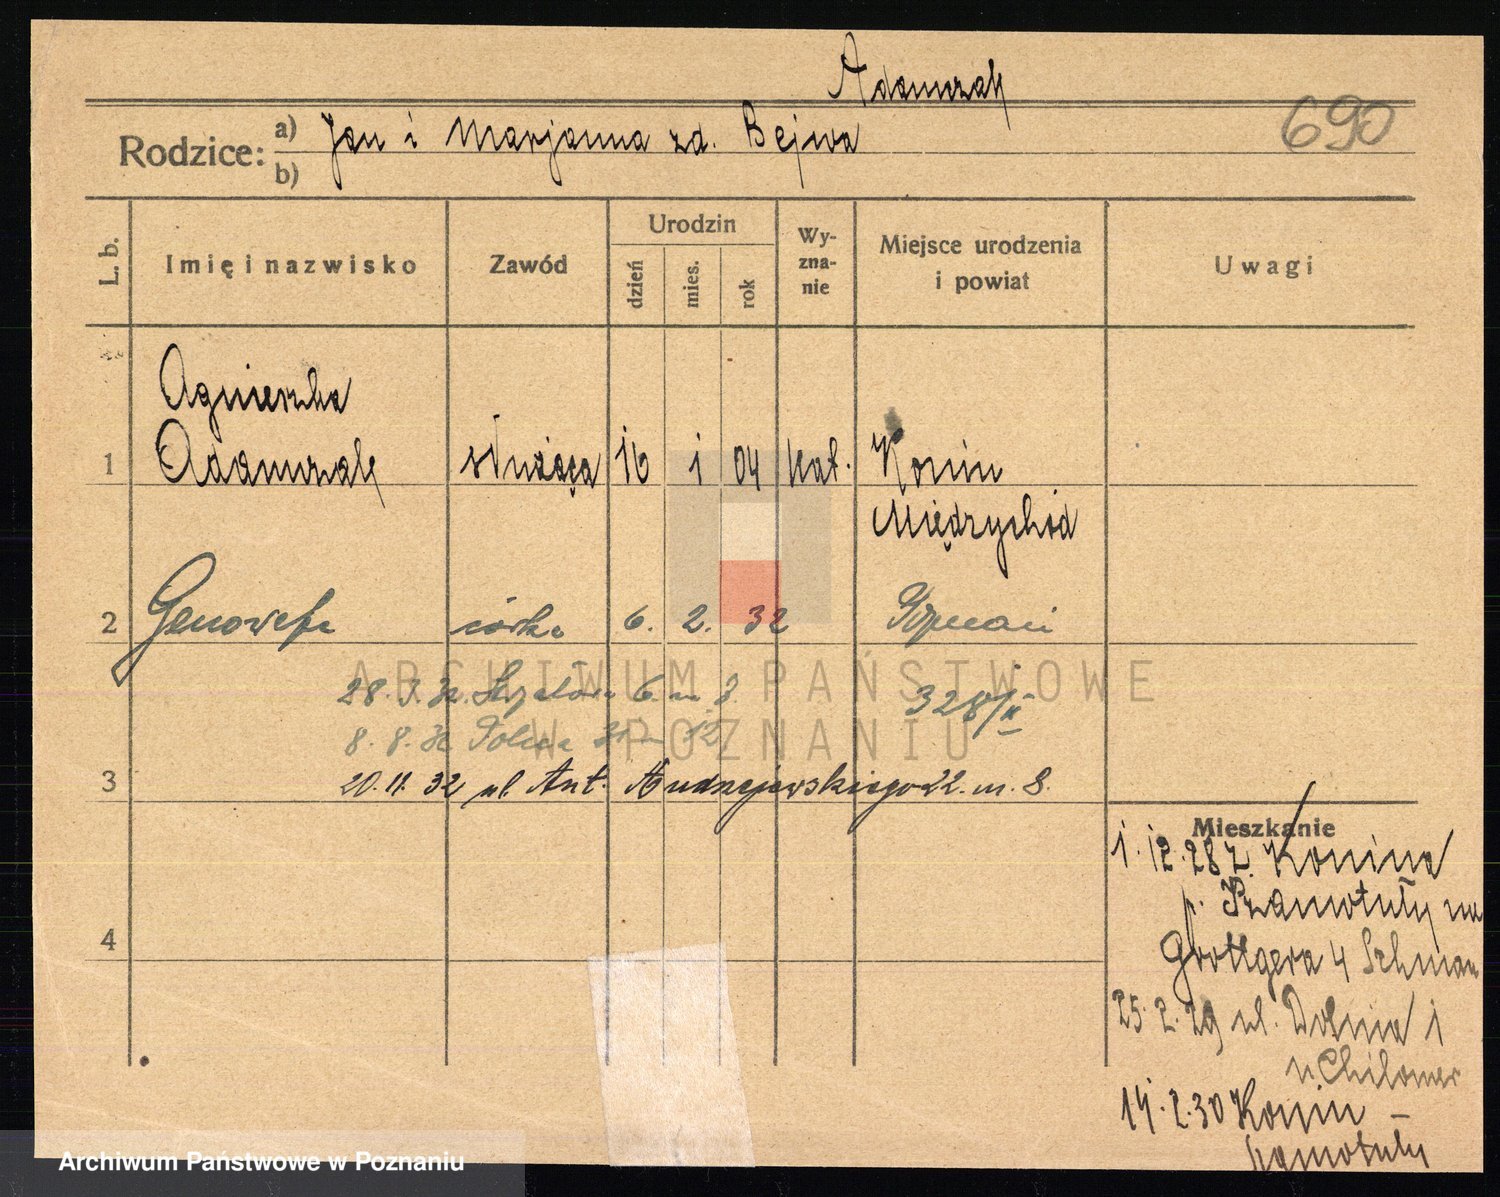 Adamczak
690
Rodzice: a) Jan i Marjanna zd. Bejwa
b)
L. b.
Imię i nazwisko
Zawód
Urodzin
dzień
mies.
rok
Wy-
zna-
nie
Miejsce urodzenia
i powiat
Uwagi
Agnieszka
1 Adamczak służąca 16 1 04 kat. Konin
Międzychód
2 Genowefa córka 6. 2. 32 Poznań
ARCHIWUM PAŃSTWOWE
W POZNANIU
28.3.32. 6. m. 3
328/II
8.8.32 Polna 31 m 12
3 20.11.32 ul. Ant. 22. m. 8.
Mieszkanie
1.12.28 z Konina
p. Szamotuły na
Grottgera 4
25.2.29 ul. Dolna 1
14.2.30 Konin –
Szamotuły
4
Archiwum Państwowe w Poznaniu